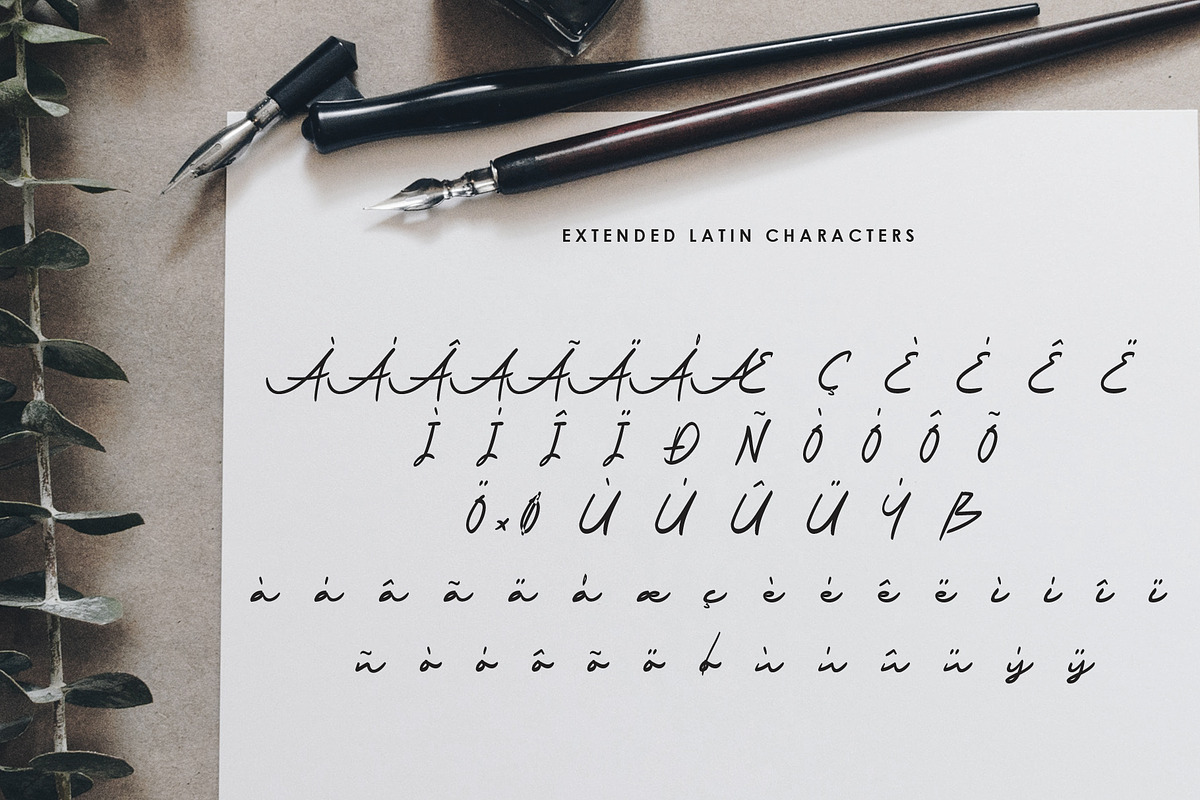 EXTENDED LATIN CHARACTERS
À Á Â A Ã Ä Å Æ Ç È É Ê Ë
Ì Í Î Ï Ð Ñ Ò Ó Ô Õ
Ö × Ø Ù Ú Û Ü Ý ß
à á â ã ä å æ ç è é ê ë ì í î ï
ñ ò ó ô õ ö ø ù ú û ü ý ÿ